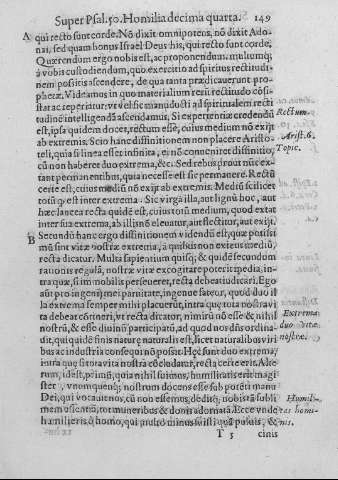 Super Psal. 50. Homilia decima quarta. 149
A qui recto sunt corde. Nō dixit omnipotens, nō dixit Adonai,
sed quam bonus Israel Deus his, qui recto sunt corde.
Quærendum ergo nobis est, ac proponendum
à vobis custodiendum, quo exercitio ad spiritus rectitudinem
positis ascendere, de qua tanta prædicauerunt prophetæ.
Videamus in quo materialium rerū rectitudo cōsistat
ac reperiatur: vt vel sic manuducti ad spiritualem rectitudinē
intelligendā ascendamus. Si experientiæ credendū Rectum.
est, ipsa quidem docet, rectum esse, cuius medium nō exijt
ab extremis. Scio hanc diffinitionem non placere Aristoteli, Arist. 6.
quia si linea esset infinita, ei nō conueniret diffinitio, Topic.
cū non haberet duo extrema, &c. Sed rebus prout nūc extant
permanentibus, quia necesse est sic permanere. Rectū
certe est, cuius mediū nō exijt ab extremis. Mediū scilicet
totū est inter extrema. Sic virga illa, aut lignū hoc, aut
hæc lancea recta quidē est, cuius totū medium, quod extat
inter sua extrema, ab illis nō eleuatur, aut flectitur, aut exijt.
B Secundū hanc ergo diffinitionem videndū est, quæ
sint vitæ nostræ extrema, à quibus non exiens mediū,
recta dicatur. Multa sapientum quisq; & quidē secundum
rationis regulā, nostræ vitæ excogitare poterit
quæ, si in nobis perseueret, recta debeat iudicari. Ego
aūt pro ingenij mei paruitate, ingenue fateor, quod duo il
la extrema semper mihi placuerūt, intra quæ tota nostra vi
ta debeat cōtineri, vt recta dicatur, nimirū nō esse & nihil Extrema
nostrū, & esse diuinū participatū, ad quod nos dn̄s ordinauit, duo vitæ
qui quidē finis naturæ naturalis est, licet naturalibus viribus nostræ.
ac industria consequi nō possit. Hęc sunt duo extrema,
intra quę si tota vita nostra cōcludatur, recta certe erit.
est, primū, quia nihil sumus, humiliatis erit magister,
vnumquemq; nostrum docens esse sub potēti manu
Dei, qui vocat nos, cū non essemus, deditq; nobis
mem essentiā, tot muneribus & donis adornatā. Ecce vnde
humilieris, ò homo, qui
T 3 cinis